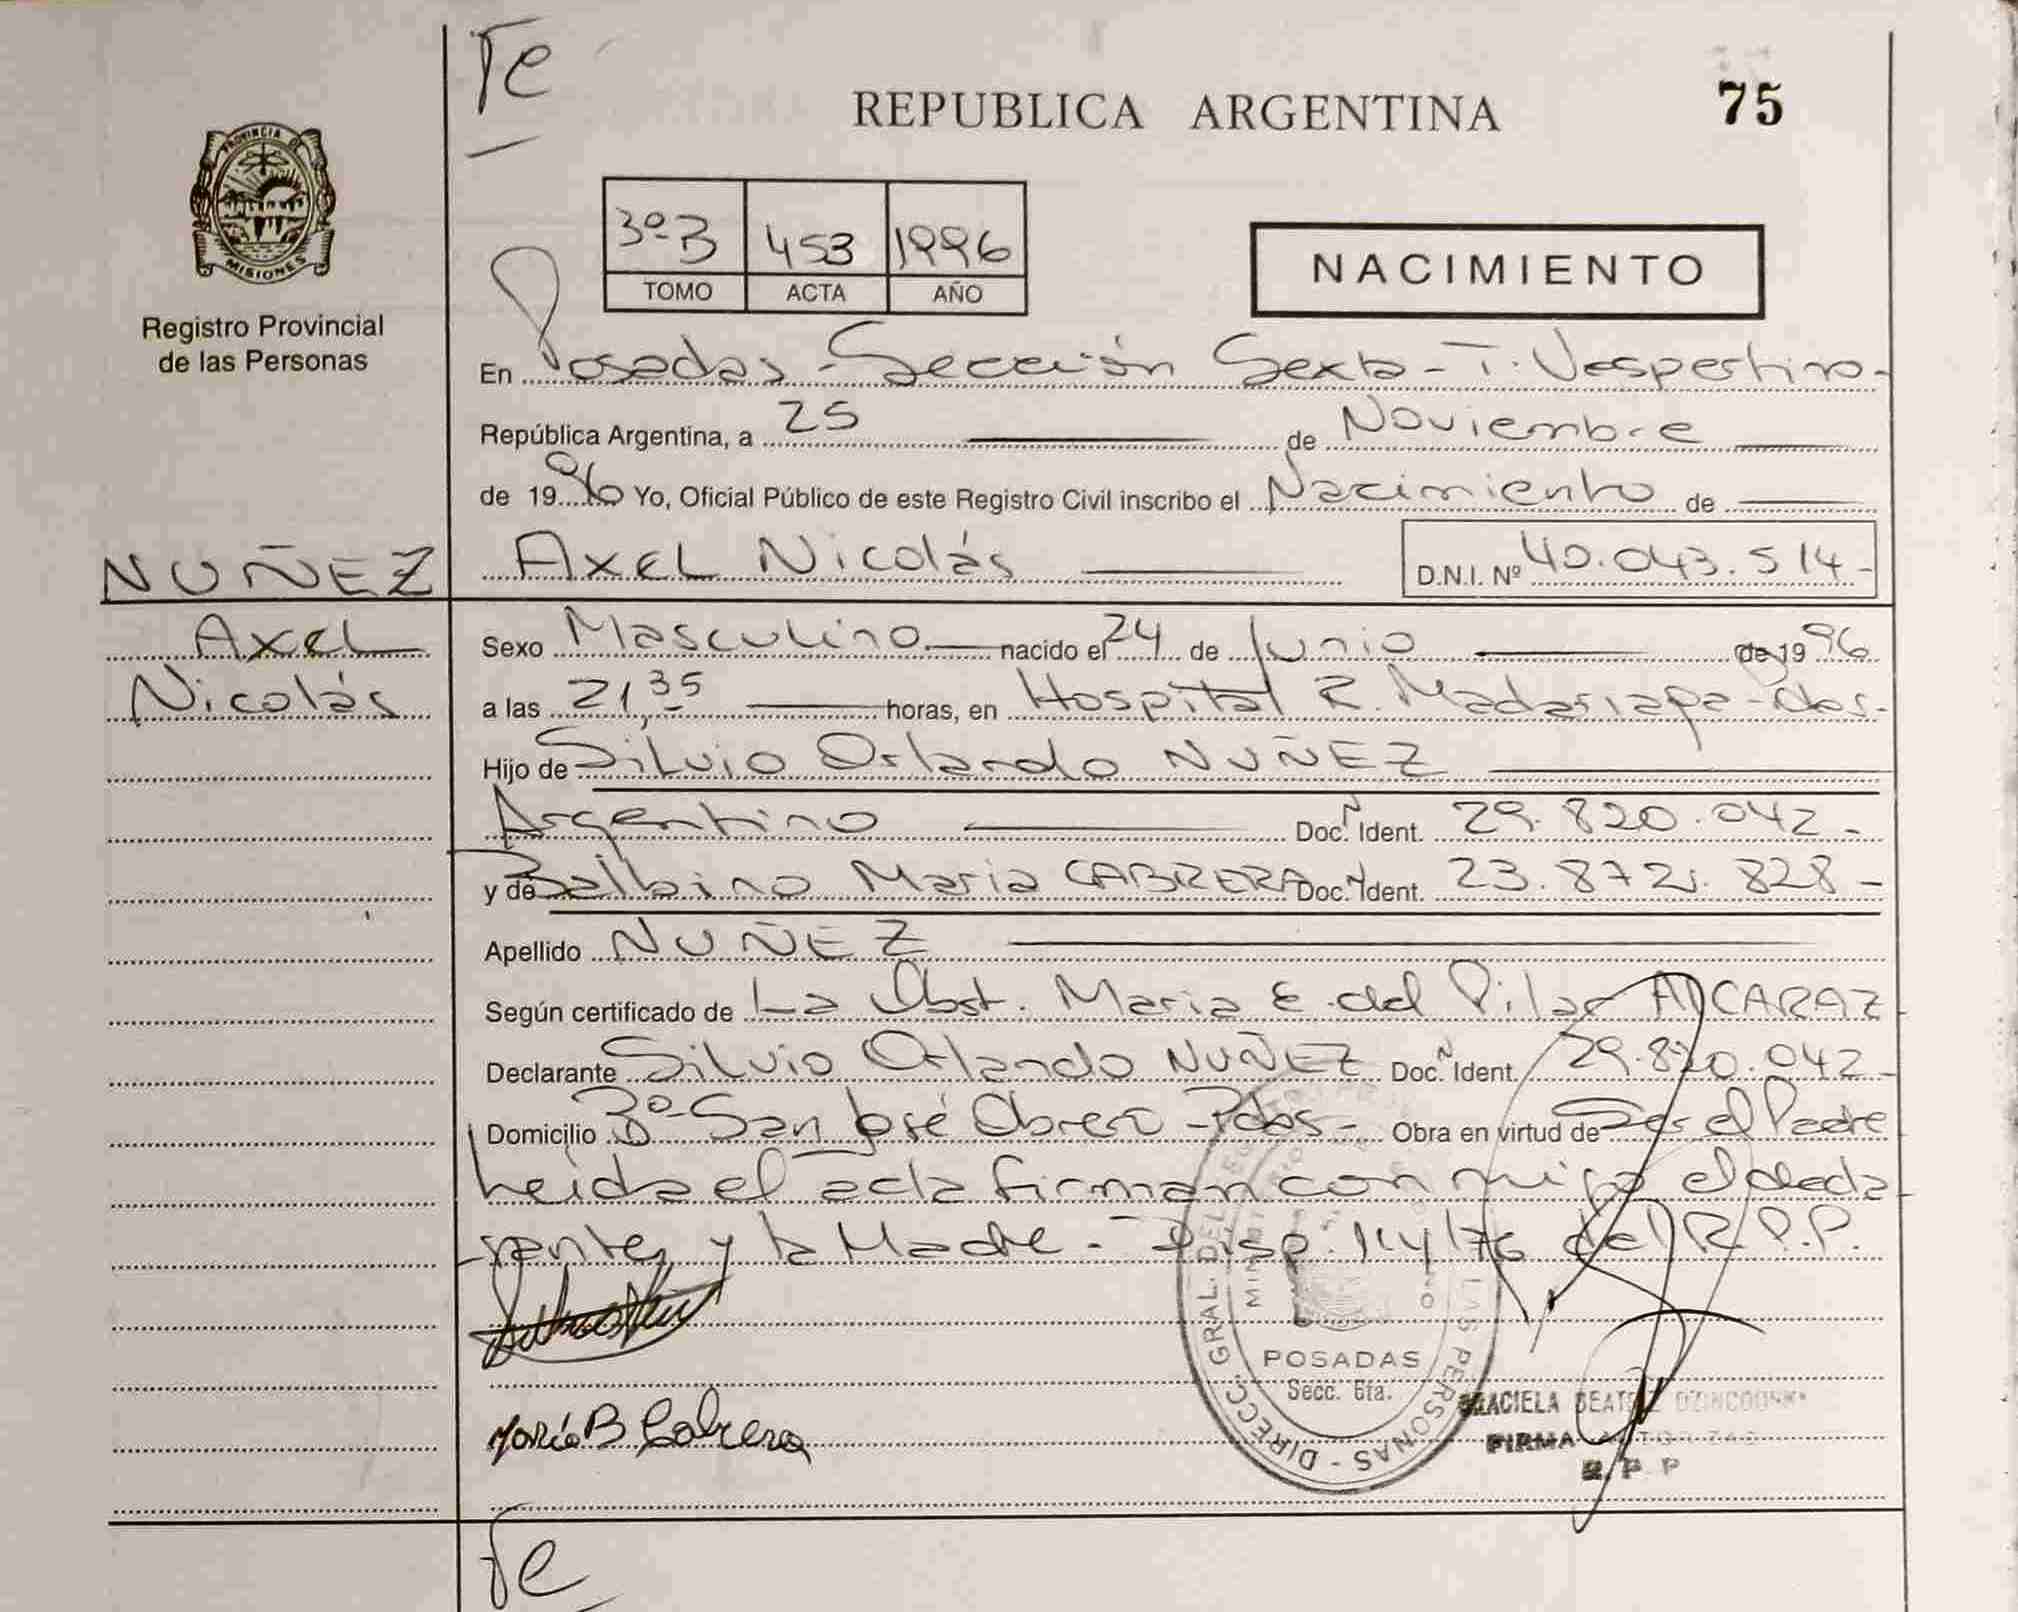 Te
REPUBLICA ARGENTINA
75
PROVINCIA DE
MISIONES
Registro Provincial
de las Personas
3º B 453 1996
TOMO ACTA AÑO
NACIMIENTO
En Posadas - Sección Sexta - T. Vespertino -
República Argentina, a 25 de Noviembre
de 1996 Yo, Oficial Público de este Registro Civil inscribo el Nacimiento de
NUÑEZ Axel Nicolás D.N.I. Nº 40.043.514-
Axel
Nicolás
Sexo Masculino nacido el 24 de Junio de 1996
a las 21,35 horas, en Hospital R. Madariaga - dos.
Hijo de Silvio Orlando NUÑEZ
Argentino Doc. N Ident. 29.820.042 -
y de Balbina Maria CABRERA Doc. N Ident. 23.872.828 -
Apellido NUÑEZ
Según certificado de La Obst. Maria E. del Pilar ALCARAZ
Declarante Silvio Orlando NUÑEZ Doc. N Ident. 29.820.042 -
Domicilio Bº San José Obrero - Pdas - Obra en virtud de Ser el Padre
Leida el acta firman conmigo el decla
rante y la Madre. - Disp. 114/76 del R.P.P.
María B Cabrera
DIRECC. GRAL. DEL PERSONAS
POSADAS
Secc. 6ta.
GRACIELA BEATRIZ
FIRMA
R. P. P
Te